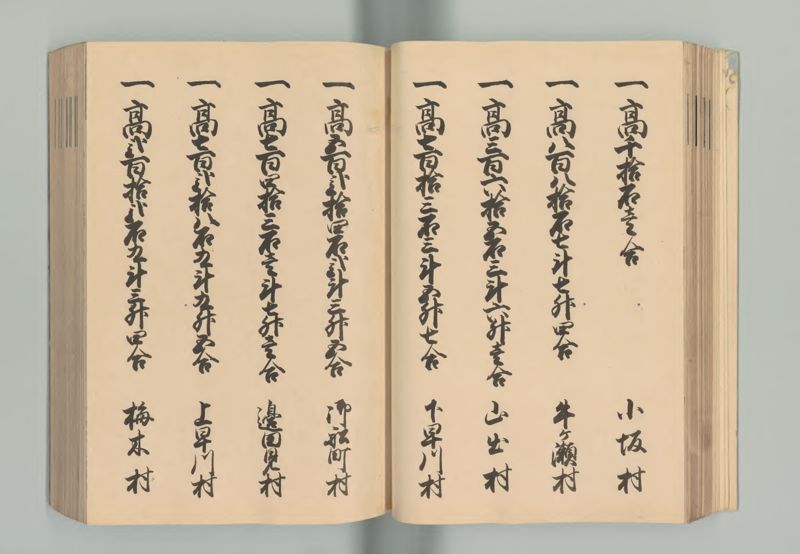 一高千拾石壱合 小坂村
一高八百八拾石七斗七升四合 牛ヶ瀬村
一高三百六拾五石三斗六升壱合 山出村
一高七百拾三石三斗五升七合 下早川村
一高五百弐拾四石弐斗三升五合 御船町村
一高七百四拾三石壱斗七升壱合 邊田見村
一高七百弐拾八石九斗九升五合 上早川村
一高弐百拾弐石九斗三升四合 梅木村